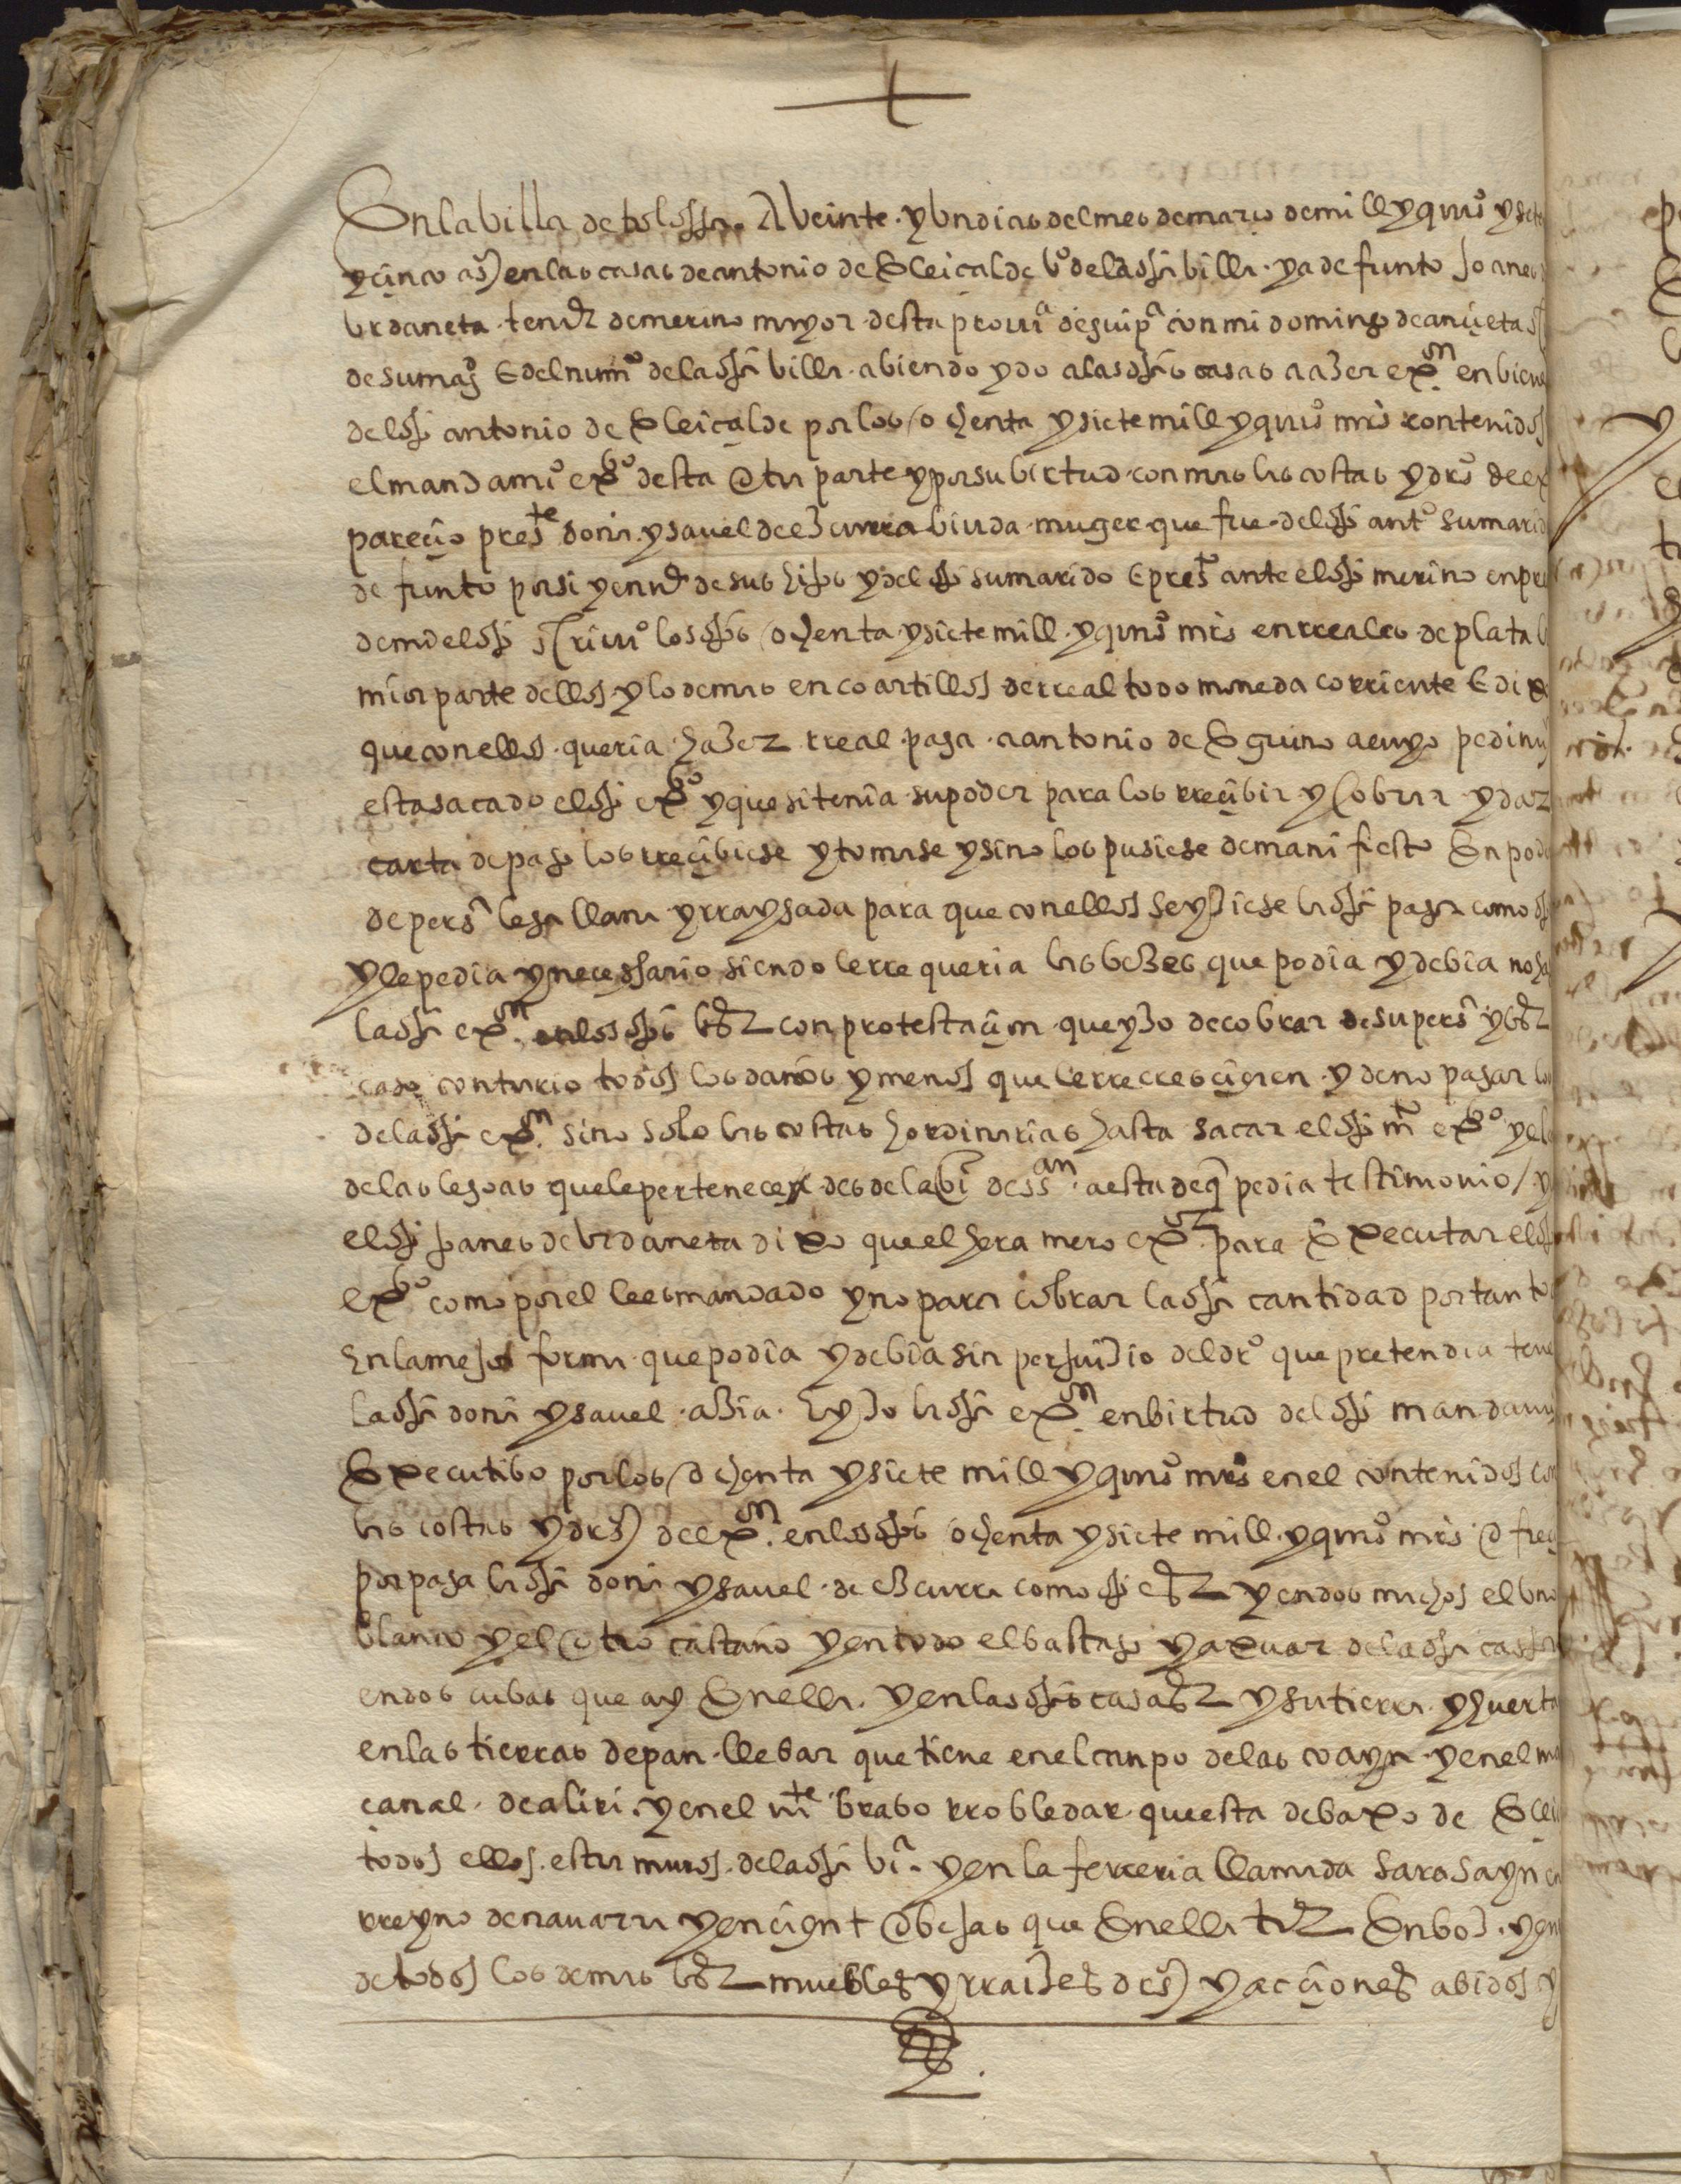 En la billa de tolossa. A veinte. y un dias del mes de março de mill y quis y set
y cinco as) en las casas de antonio de Eleiçalde vo de la dha billa. ya defunto joanes
vrdaneta. tenie de merino mayor. desta provia de guipa con mi domingo de ançieta
de su magd E del numo de la dha billa. abiendo ydo a las dhas casas a azer exon en bienes
del dho antonio de Eleiçalde por los ochenta y siete mill y quis mrs contenidos
el mandamio exvo desta otra parte y por su birtud. con mas las costas y dros de ex
pareçio preste doña. ysavel de ezcurra biuda. muger. que fue. del dho anto su marido
defunto por si y en ne de sus hijos y del dho su marido E presto ante el dho merino en pre
de mi el dho scrivio los dhos ochenta y siete mill. y quis mrs en rreales de plata
mior parte dellos y lo demas en coartillos de rreal todo moneda corriente E dixo
que con ellos. queria. hazer rreal. paga. a antonio de Eguino a cuyo pedimi
esta sacado el dho exvo y que si tenia su poder para los rreçibir y cobrar y dar
carta de pago los rreçibiese y tomase y sino los pusiese de manifiesto En pode
de persa lega llana y rraygada para que con ellos se yziese la dha paga como dho
y le pedia y neçessario siendo le rrequeria las bezes que podia y debia no ha
la dha exon. en los dhos bes con protestaçion. que yzo de cobrar de su persa y bes
caso contrario todos los daños y menos que le rrecresçieren. y de no pagar lo
de la dha exon. sino solo las costas hordinarias hasta sacar el dho mo exvo y el
de las legoas que le perteneçen. desde la bi de ssan. a esta de q pedia testimonio / y
el dho joanes de vrdaneta dixo que el hera mero exor. para Executar el dho
exvo como por el le es mandado y no para cobrar la dha cantidad por tanto
En la mejor forma. que podia y debia sin perjuizio del dro que pretendia tene
la dha doña ysavel. azia. E yzo la dha exon. en birtud del dho mandami
Executibo por los ochenta y siete mill y quis mrs en el contenidos con
las costas y drs) de exon. en los dhos ochenta y siete mill. y quis mrs. ofreç
por paga la dha doña ysavel. de ezcurra como dho es y en dos machos el uno
blanco y el otro castaño y en todo el bastago y axuar de la dha cassa
en dos cubas que ay En ella. y en las dhas casas y su tierra. y huerta
en las tierras de pan. llebar que tiene en el canpo de las coaga. y en el ma
çanal. de aliri. y en el mte brabo rrobledar. questa debaxo de Elei
todos ellos. estra muros. de la dha bia. y en la ferreria llamada sarasayn en
rreyno de navarra y en çient obejas que En ella tie En boz. y en
de todos los demas bes muebles y rraizes drs) y açiones abidos y